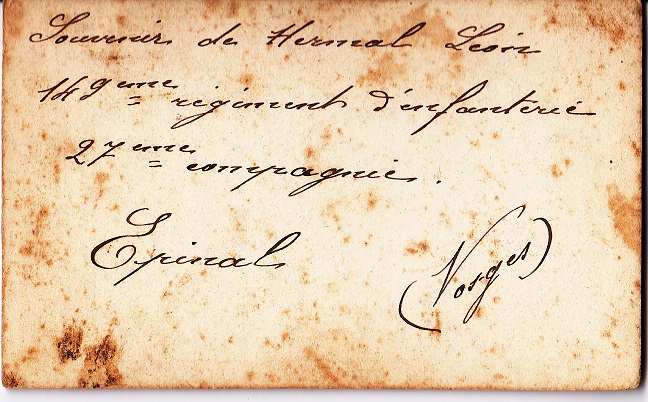 Souvenir de Hermal Léon
149eme régiment d'enfanterie
27eme compagnie.
Epinal (Vosges)